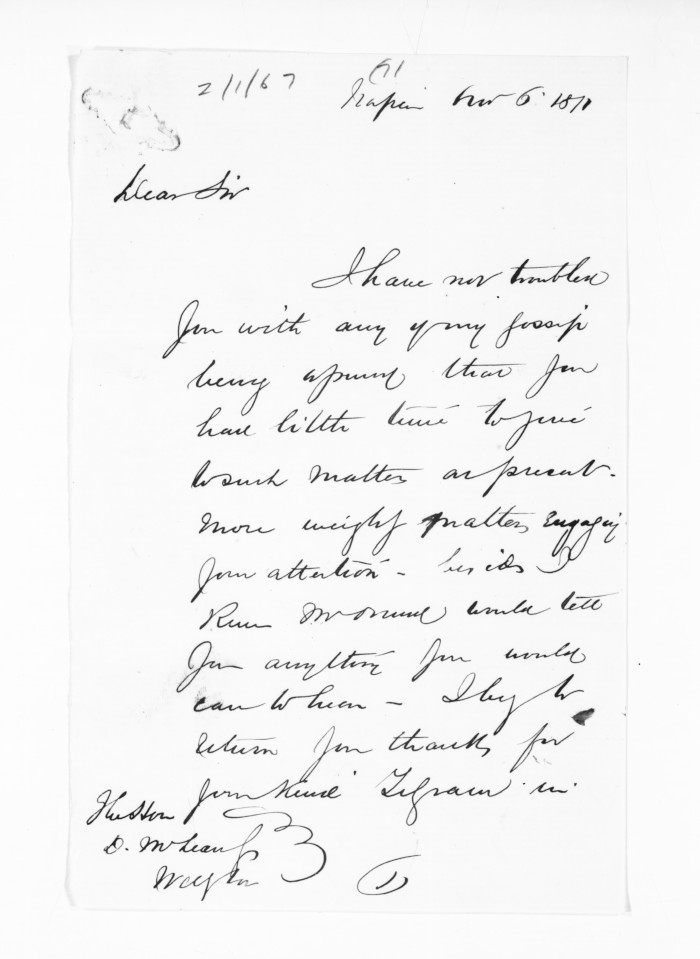 2/1/67
Napier Nov 6 1871
Dear Sir
I have not troubled
you with any of my gossip
being afraid that you
have little time to give
to such matters at present -
more weighty matters engaging
your attention - besides I
knew would tell
you anything you would
care to hear - I beg to
return you thanks for
your kind Telgram in
The Hon
D. McLean
Welgton
(1)